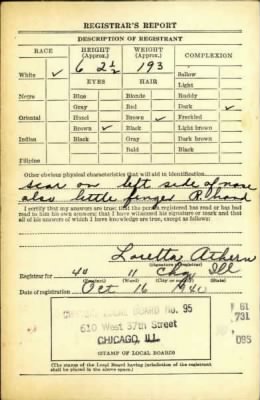 REGISTRAR'S REPORT
DESCRIPTION OF REGISTRANT
RACE HEIGHT (Approx.) WEIGHT (Approx.) COMPLEXION
6 2½ 193
White ✓ EYES HAIR Sallow
Light
Negro Blue Blonde Ruddy
Gray Red Dark ✓
Oriental Hazel Brown ✓ Freckled
Brown ✓ Black Light brown
Indian Black Gray Dark brown
Bald Black
Filipino
Other obvious physical characteristics that will aid in identification
scar on left side of nose
also little finger R. hand
I certify that my answers are true; that the person registered has read or has had read to him his own answers; that I have witnessed his signature or mark and that all of his answers of which I have knowledge are true, except as follows:
Loretta Ahern
Registrar for 40 11 Chg Ill
(City or county) (State)
Date of registration Oct 16 1940
LOCAL BOARD No. 95
610 West 37th Street
CHICAGO, ILL.
61
731
095
STAMP OF LOCAL BOARD
(The stamp of the Local Board having jurisdiction of the registrant shall be placed in the above space.)